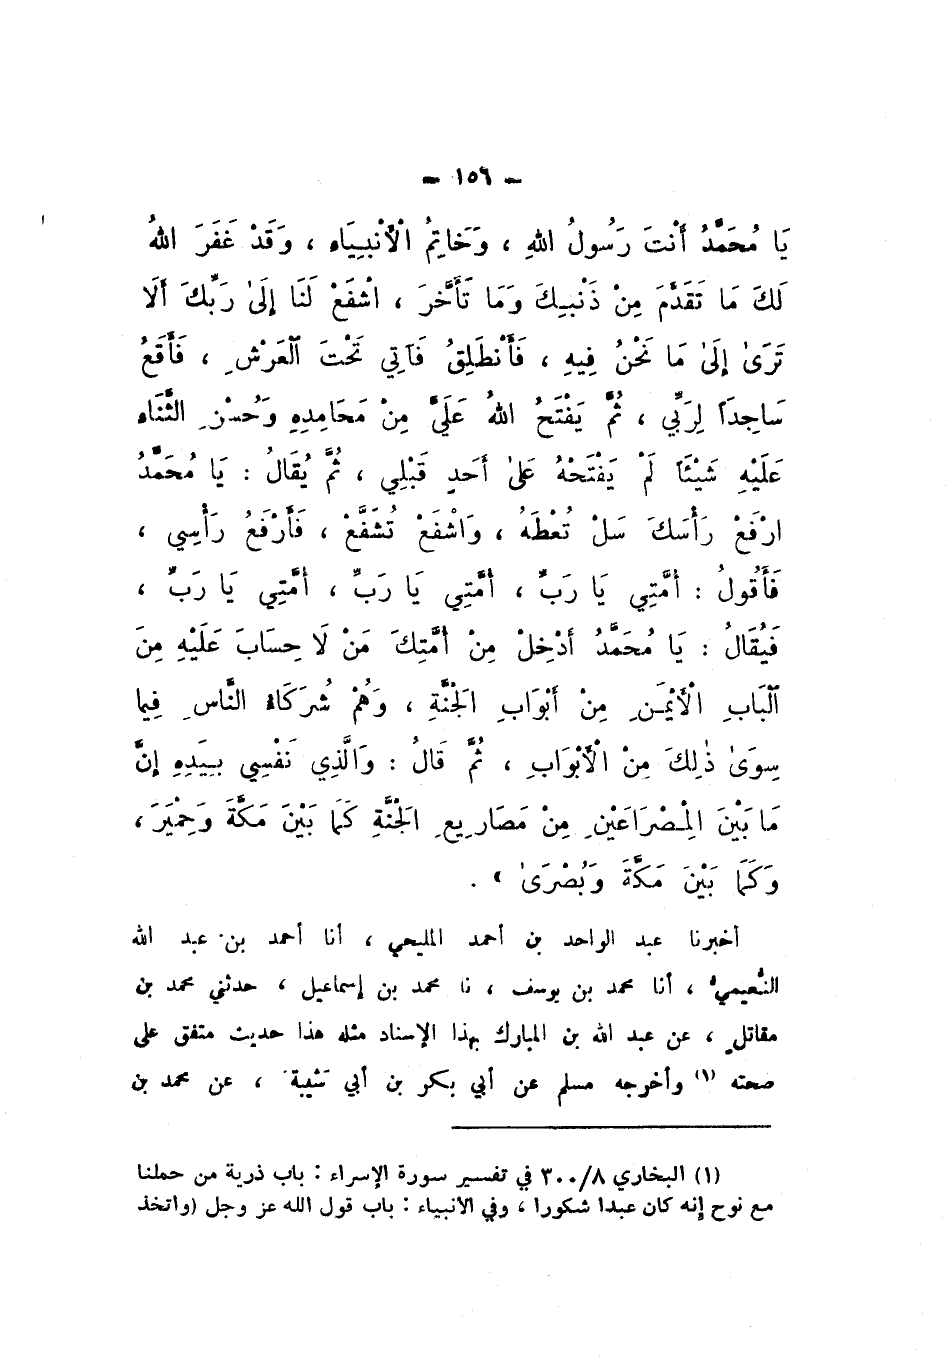 - ١٥٦ -
يَا مُحَمَّدُ أَنْتَ رَسُولُ اللهِ ، وَخَاتِمُ الْأَنْبِيَاءِ ، وَقَدْ غَفَرَ اللهُ
لَكَ مَا تَقَدَّمَ مِنْ ذَنْبِكَ وَمَا تَأَخَّرَ ، اشْفَعْ لَنَا إِلَىٰ رَبِّكَ أَلَا
تَرَىٰ إِلَىٰ مَا نَحْنُ فِيهِ ، فَأَنْطَلِقُ فَآتِي تَحْتَ الْعَرْشِ ، فَأَقَعُ
سَاجِدَاً لِرَبِّي ، ثُمَّ يَفْتَحُ اللهُ عَلَيَّ مِنْ مَحَامِدِهِ وَحُسْنِ الثَّنَاءِ
عَلَيْهِ شَيْئَاً لَمْ يَفْتَحْهُ عَلَىٰ أَحَدٍ قَبْلِي ، ثُمَّ يُقَالُ : يَا مُحَمَّدُ
ارْفَعْ رَأْسَكَ سَلْ تُعْطَهُ ، وَاشْفَعْ تُشَفَّعْ ، فَأَرْفَعُ رَأْسِي ،
فَأَقُولُ : أُمَّتِي يَا رَبِّ ، أُمَّتِي يَا رَبِّ ، أُمَّتِي يَا رَبِّ ،
فَيُقَالُ : يَا مُحَمَّدُ أَدْخِلْ مِنْ أُمَّتِكَ مَنْ لَا حِسَابَ عَلَيْهِ مِنَ
الْبَابِ الْأَيْمَنِ مِنْ أَبْوَابِ الجَنَّةِ ، وَهُمْ شُرَكَاءُ النَّاسِ فِيمَا
سِوَىٰ ذٰلِكَ مِنْ الْأَبْوَابِ ، ثُمَّ قَالُ : وَالَّذِي نَفْسِي بِيَدِهِ إِنَّ
مَا بَيْنَ الْمِصْرَاعَيْنِ مِنْ مَصَارِيعِ الجَنَّةِ كَمَا بَيْنَ مَكَّةَ وَحِمْيَرَ ،
وَكَمَا بَيْنَ مَكَّةَ وَبُصْرَىٰ » .
أخبرنا عبد الواحد بن أحمد المليحي ، أنا أحمد بن عبد الله
النُّعيمي ، أنا محمد بن يوسف ، نا محمد بن إسماعيل ، حدثني محمد بن
مقاتلٍ ، عن عبد الله بن المبارك بهذا الإسناد مثله هذا حديث متفق على
صحته (١) وأخرجه مسلم عن أبي بكر بن أبي شيبة ، عن محمد بن
(١) البخاري ٣٠٠/٨ في تفسير سورة الإسراء : باب ذرية من حملنا
مع نوح إنه كان عبدا شكورا ، وفي الأنبياء : باب قول الله عز وجل (واتخذ